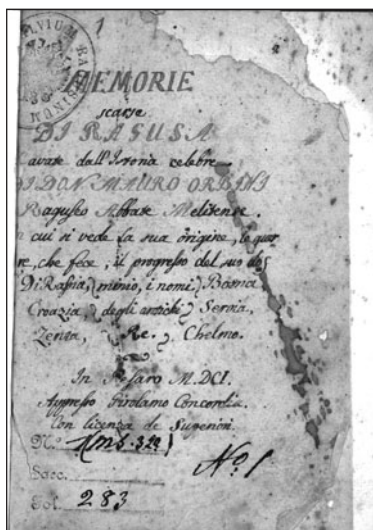 1
MEMORIE
scarse
DI RAGUSA
cavate dall'Istoria celebre
DI DON MAURO ORBINI
Raguseo Abbate Melitense.
n cui si vede la sua origine, le guer
re, che fece, il progresso del suo do
Di Raſsia, (minio, i nomi) Bosna
Croazia, degli antichi Servia,
Zenta, Re, Chelmo.
In Pesaro M.DCI.
Appresso Girolamo Concordia.
Con licenza de Superiori.
N.º 1 (ms. 322)
Nº 1
Sacc.
Fol. 283